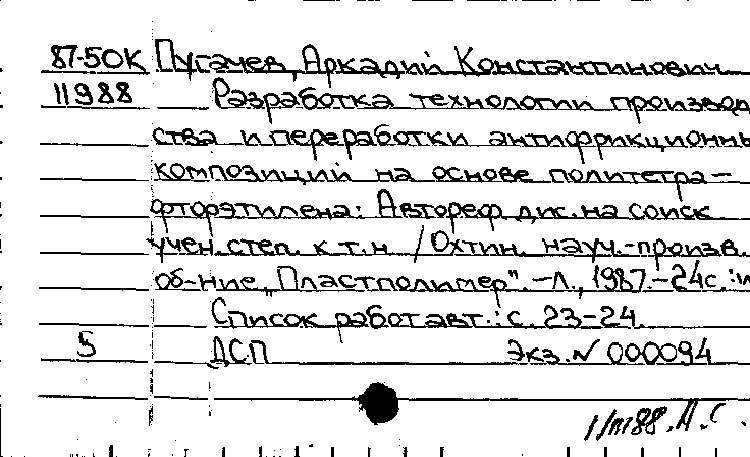 87-5OK Пугачев, Аркадий Константинович
11988 Разработка технологии производ
ства и переработки антифрикционны
композиций на основе политетра-
фторэтилена: Автореф. дис. на соиск
учен. степ. к.т.н. / Охтин. науч.-произв.
об-ние „Пластполимер". -Л., 1987. -24с.:и
Список работ авт.: с. 23-24.
5 ДСП Экз. № 000094